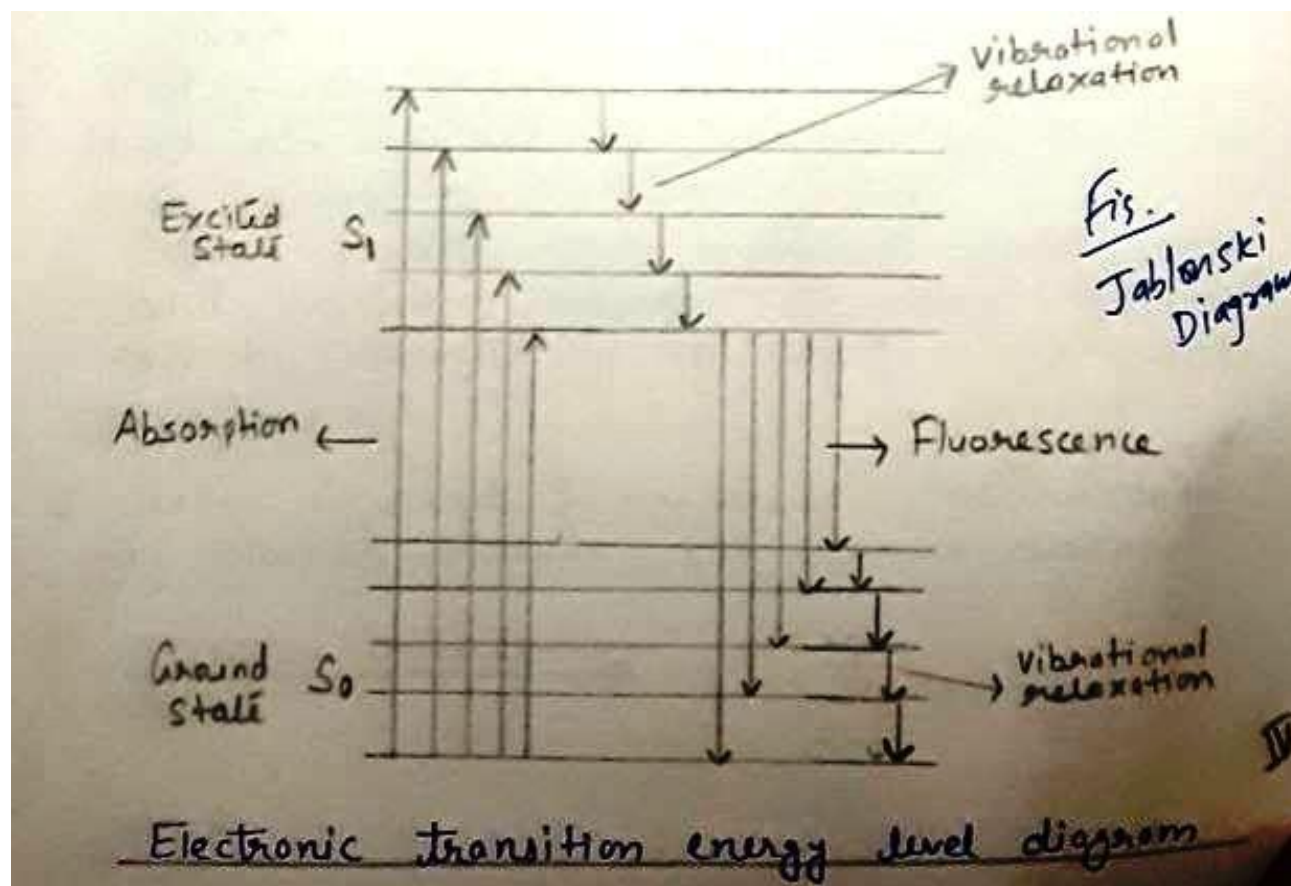 Vibrational
relaxation
Fig.
Jablonski
Diagram
Excited
State S1
Absorption
Fluorescence
Ground
State S0
Vibrational
relaxation
Electronic transition energy level diagram